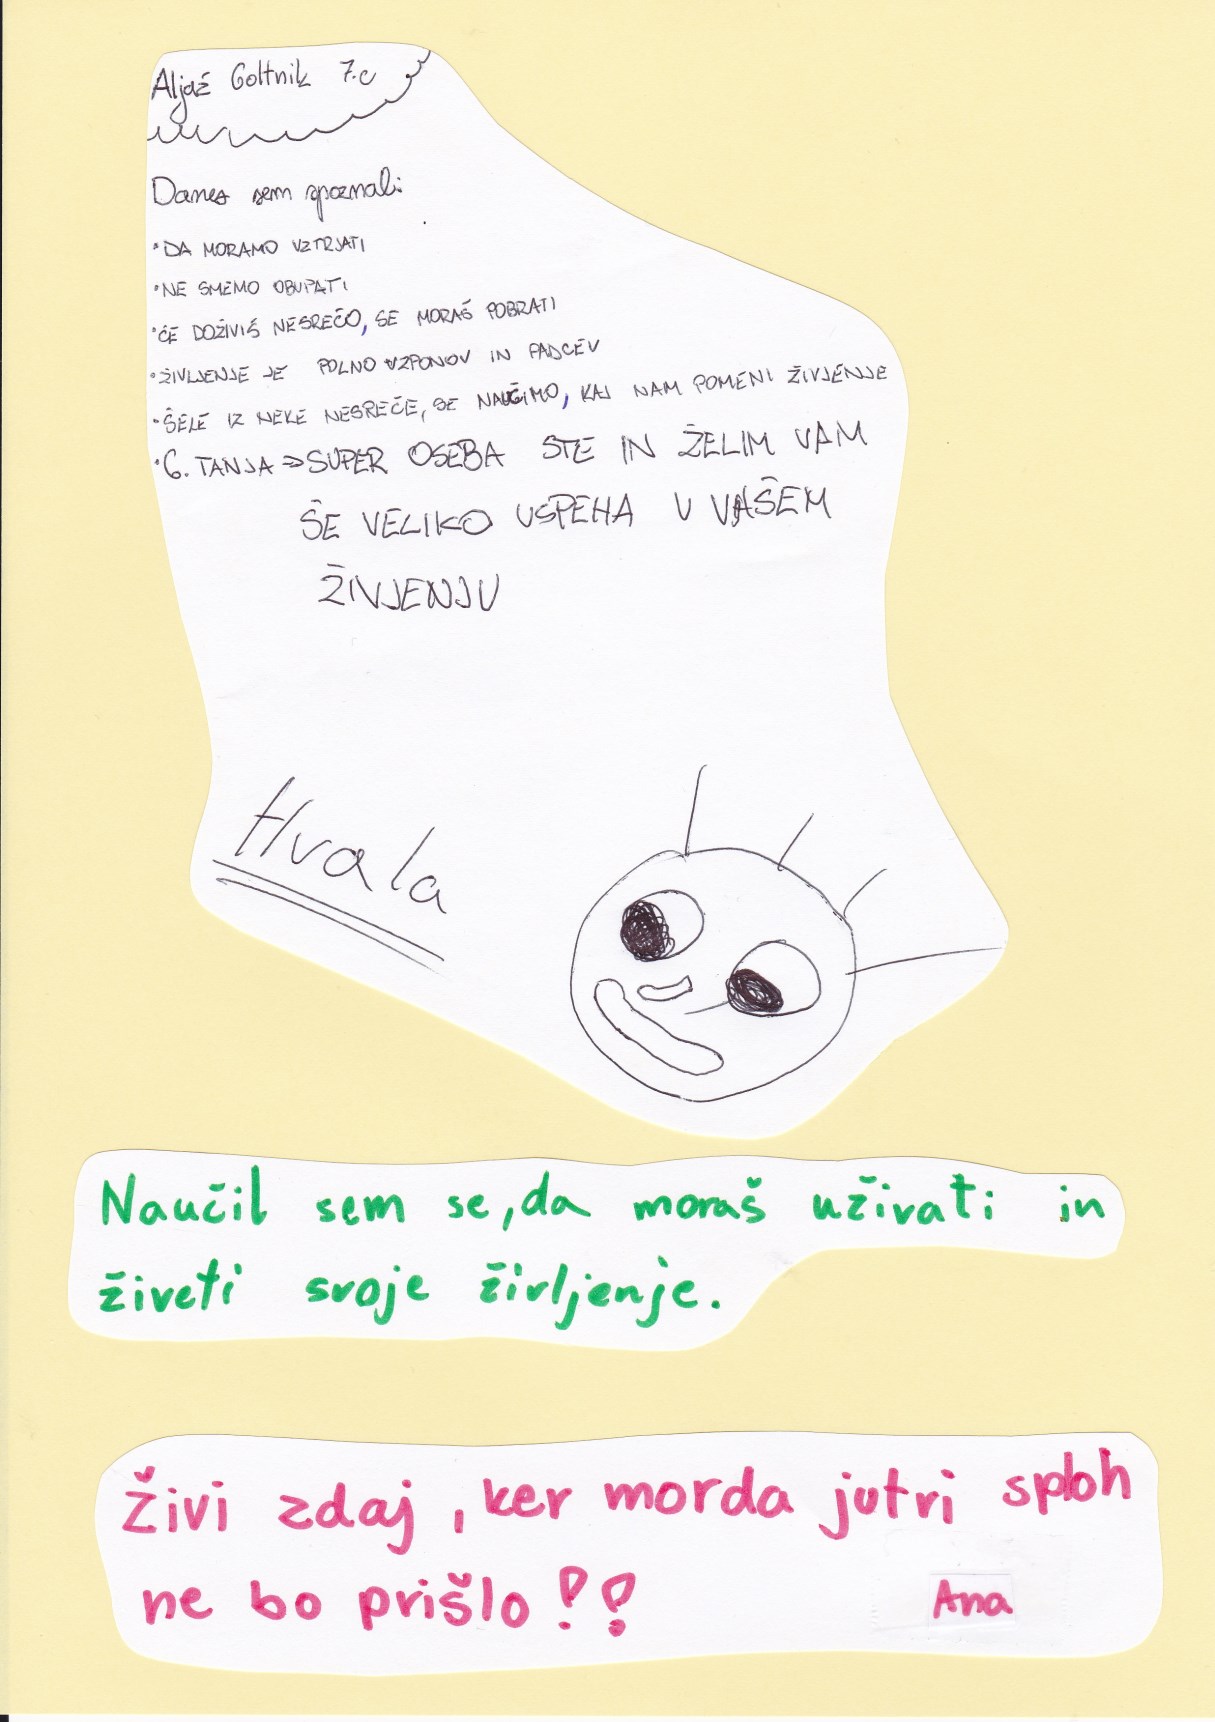 Aljaž Goltnik 7.c
Danes sem spoznal:
• DA MORAMO VZTRJATI
• NE SMEMO OBUPATI
• ČE DOŽIVIŠ NESREČO, SE MORAŠ POBRATI
• ŽIVLJENJE JE POLNO VZPONOV IN PADCEV
• ŠELE IZ NEKE NESREČE, SE NAUČIMO, KAJ NAM POMENI ŽIVJENJE
• G. TANJA ⇒ SUPER OSEBA STE IN ŽELIM VAM
ŠE VELIKO USPEHA V VAŠEM
ŽIVJENJU
Hvala
Naučil sem se, da moraš uživati in
živeti svoje življenje.
Živi zdaj, ker morda jutri sploh
ne bo prišlo!!
Ana